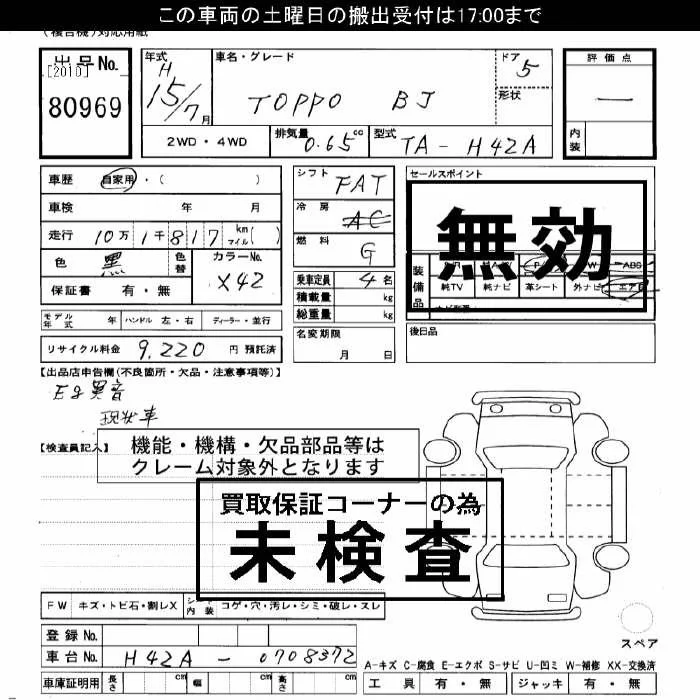 この車両の土曜日の搬出受付は17:00まで
(複合機)対応用紙
出品No.
[2010]
80969
年式 車名・グレード ドア 評価点
H 15/7月 TOPPO BJ 5 形状 —
2WD・4WD 排気量 0.65cc 型式 TA-H42A 内装
車歴 自家用・( ) シフト FAT セールスポイント
車検 年 月 冷房 AC
無効
走行 10万1千817km マイル( ) 燃料 G
色 黒 色替 カラーNo. X42
装備品 S/R ABS
純TV 純ナビ 革シート 外ナビ エアB
保証書 有・無
乗車定員 4名
積載量 kg
総重量 kg
モデル年式 年 ハンドル 左・右 ディーラー・並行
名変期限 月 日
後日品
リサイクル料金 9,220 円 預託済
【出品店申告欄(不良箇所・欠品・注意事項等)】
Eg異音
現状車
【検査員記入】
機能・機構・欠品部品等は
クレーム対象外となります
買取保証コーナーの為
未検査
FW キズ・トビ石・割レX シート内装 コゲ・穴・汚レ・シミ・破レ・スレ
登録No.
スペア
車台No. H42A-0708372
A-キズ C-腐食 E-エクボ S-サビ U-凹ミ W-補修 XX-交換済
車庫証明用 長さ cm 幅 cm 高さ cm
工具 有・無 ジャッキ 有・無